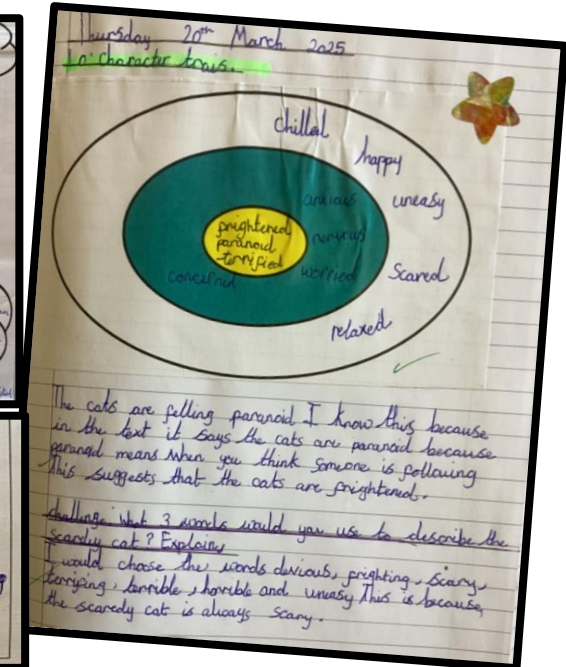 Thursday 20th March 2025
Lo: character trais.
chilled
happy
anxious
uneasy
frightened
paranoid
terrified
nervous
worried
concerned
Scared
relaxed
The cats are felling paranoid I know this because
in the text it says the cats are paranoid because
paranoid means when you think someone is following
This suggests that the cats are frightened.
challenge: What 3 words would you use to describe the
scaredy cat? Explain,
I would choose the words devious, frighting, scary,
terrifing, terrible, horrible and uneasy This is because,
the scaredy cat is always scary.